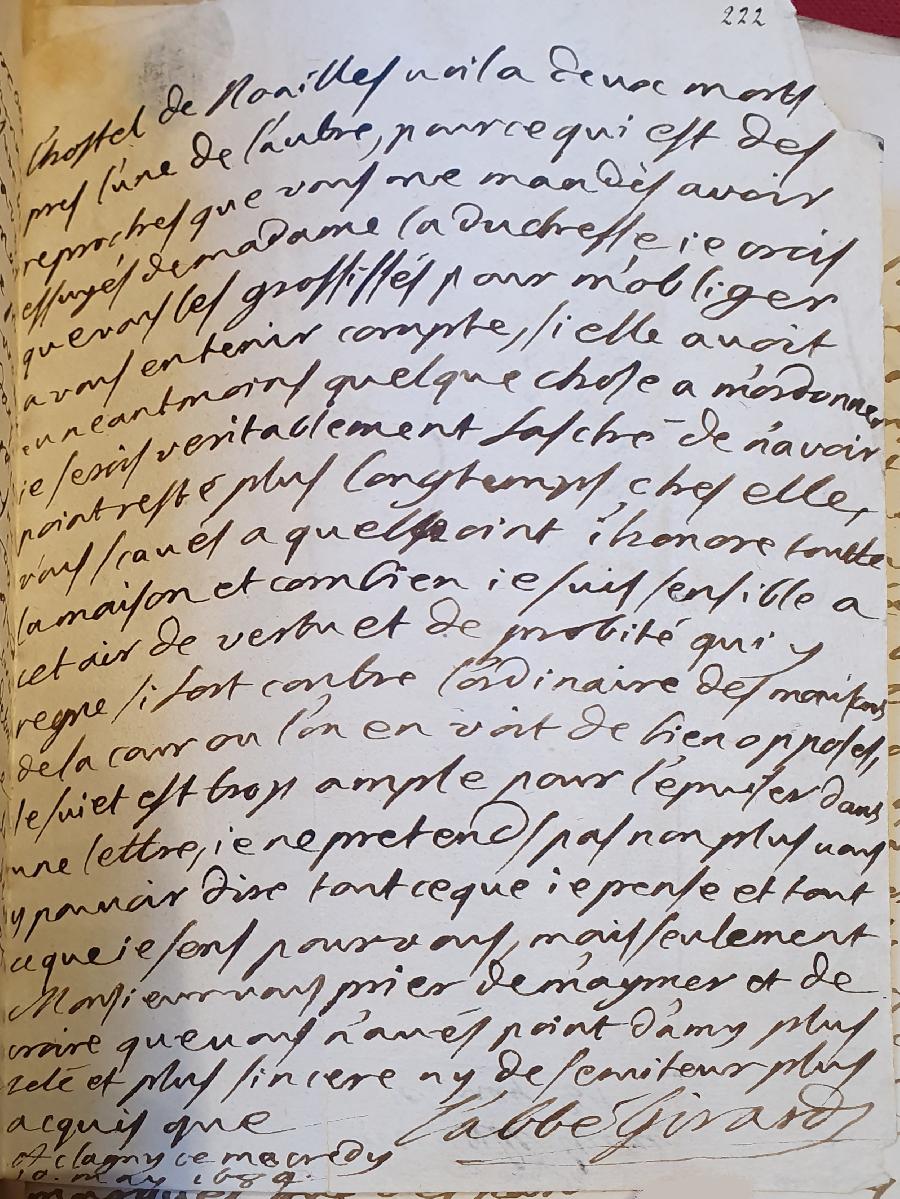 222
l'hostel de Noailles voila deux morts
pres l'une de l'autre, pour ce qui est des
reproches que vous me mandés avoir
essuyés de madame la duchesse ie crois
que vous les grossissés pour m'obliger
a vous en tenir compte, si elle avoit
neantmoins quelque chose a m'ordonner
ie serois veritablement fasché de n'avoir
point resté plus longtemps chés elle,
vous scaués a quel point i'honore toutte
la maison et combien ie suis sensible a
cet air de vertu et de probité qui y
regne si fort contre l'ordinaire des maisons
de la cour ou l'on en voit de bien opposés,
le suiet est trop ample pour l'épuiser dans
une lettre, ie ne pretends pas non plus vous
y pouuoir dire tout ce que ie pense et tout
ce que ie sens pour vous, mais seulement
Monsieur vous prier de m'aymer et de
croire que vous n'aués point d'amy plus
zelé et plus sincere ny de seruiteur plus
acquis que l'abbé Girard
A clagny ce mecredy
10. may 1689.